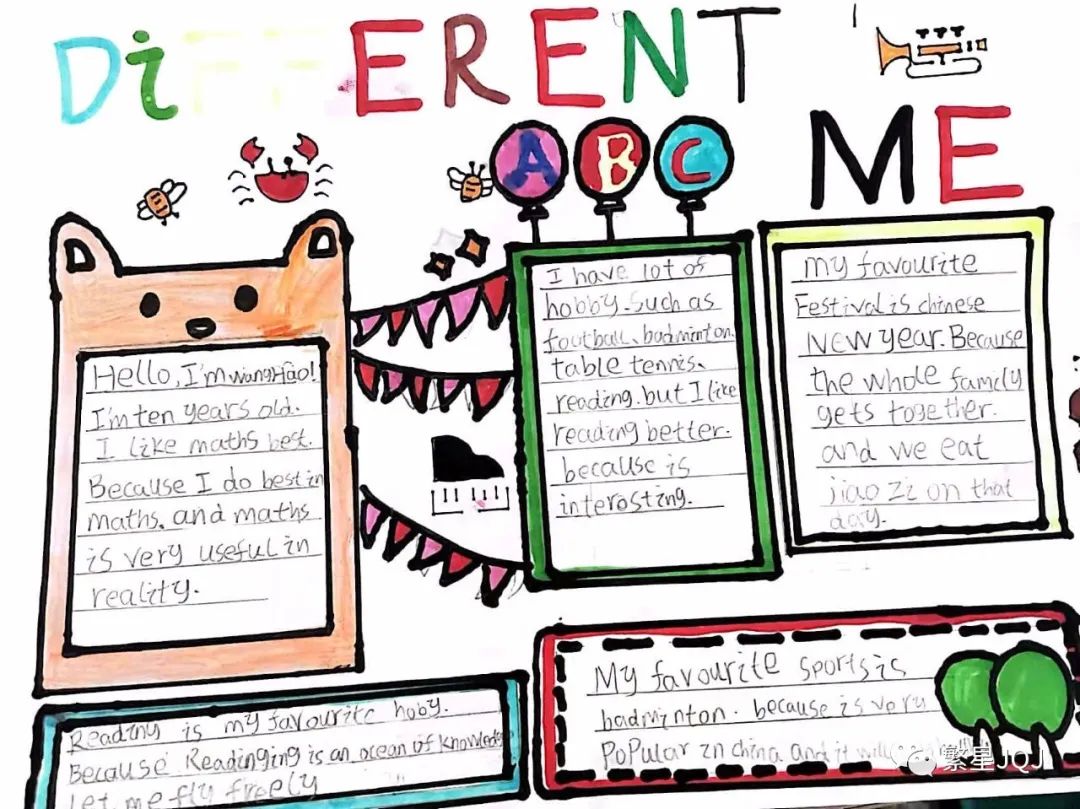 DiFFERENT
ME
A B C
Hello, I'm wangHao!
I'm ten years old.
I like maths best.
Because I do best in
maths. and maths
is very useful in
reality.
I have lot of
hobby. such as
football、badminton、
table tennis、
reading. but I like
reading better.
because is
interosting.
my favourite
Festival is chinese
New year. Because
the whole family
gets together.
and we eat
jiao zi on that
day.
Reading is my favourite hoby.
Because Readinging is an ocean of knowledge
Let me fly freely
My favourite sports is
badminton. because is very
PoPular in china. and it will
繁星JQJ